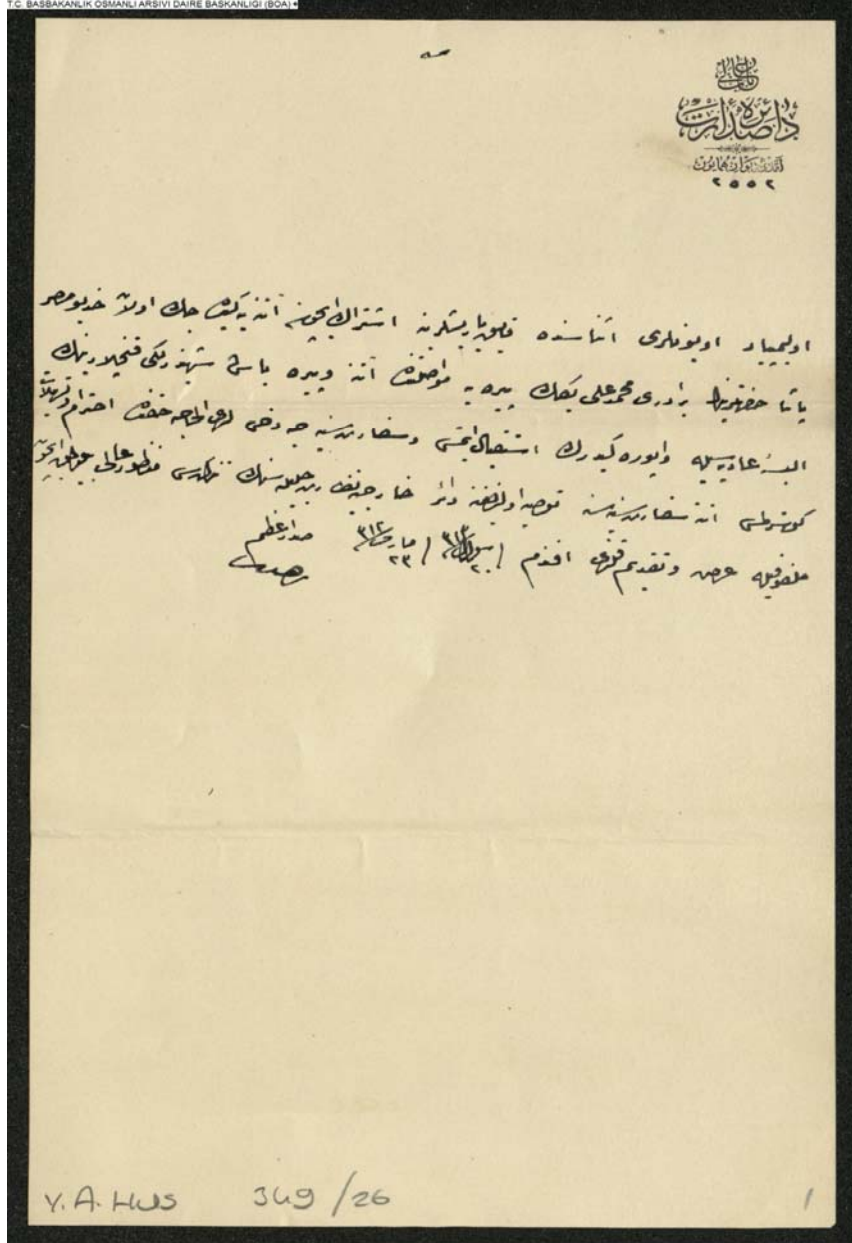 T.C. BASBAKANLIK OSMANLI ARSIVI DAIRE BASKANLIGI (BOA)
باب عالی
دائرهٔ صدارت
آمدئ ديوان همايون
٢٥٥٢
اولیمپیاد اویونلری اثناسنده قایق یاریشلرینه اشتراك ایچون آتنه‌یه كیده‌جك اولان خدیو مصر
پاشا حضرتلرینك برادری محمد علی بكك پیره‌یه مواصلتنده آتنه وپیره باش شهبندرلكی قنچلاریه‌نك
البسهٔ عادیه‌سیله واپوره كیدرك استقبال ایتمسی وسفارت سنیه‌جه دخی لدی الحاجه حقنده احترام وتسهیلات
كوسترلمسی آتنه سفارت سنیه‌سنه توصیه اولندیغنه دائر خارجیه نظارت جلیله‌سنك تذكره‌سی منظور عالی بیورلمق ایچون
ملفوفیله عرض وتقدیم قلندی افندم
٢٣ مارت ٣١٢
صدر اعظم
رفعت
Y.A.HUS 349/26
1